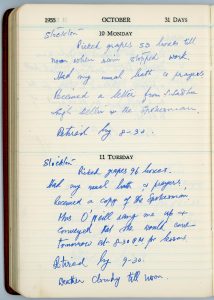 1955 OCTOBER 31 DAYS
10 MONDAY
Stockton
Picked grapes 53 boxes till
noon when rain stopped work.
Had my usual bath & prayers
Received a letter from
& the Spokesman.
Retired by 8-30.
11 TUESDAY
Stockton
Picked grapes 96 boxes.
Had my usual bath & prayers,
received a copy of the Spokesman
Mrs O'Neill rang me up &
conveyed that she would come
tomorrow at 8:30 PM for lessons.
Retired by 9-30.
Weather cloudy till noon